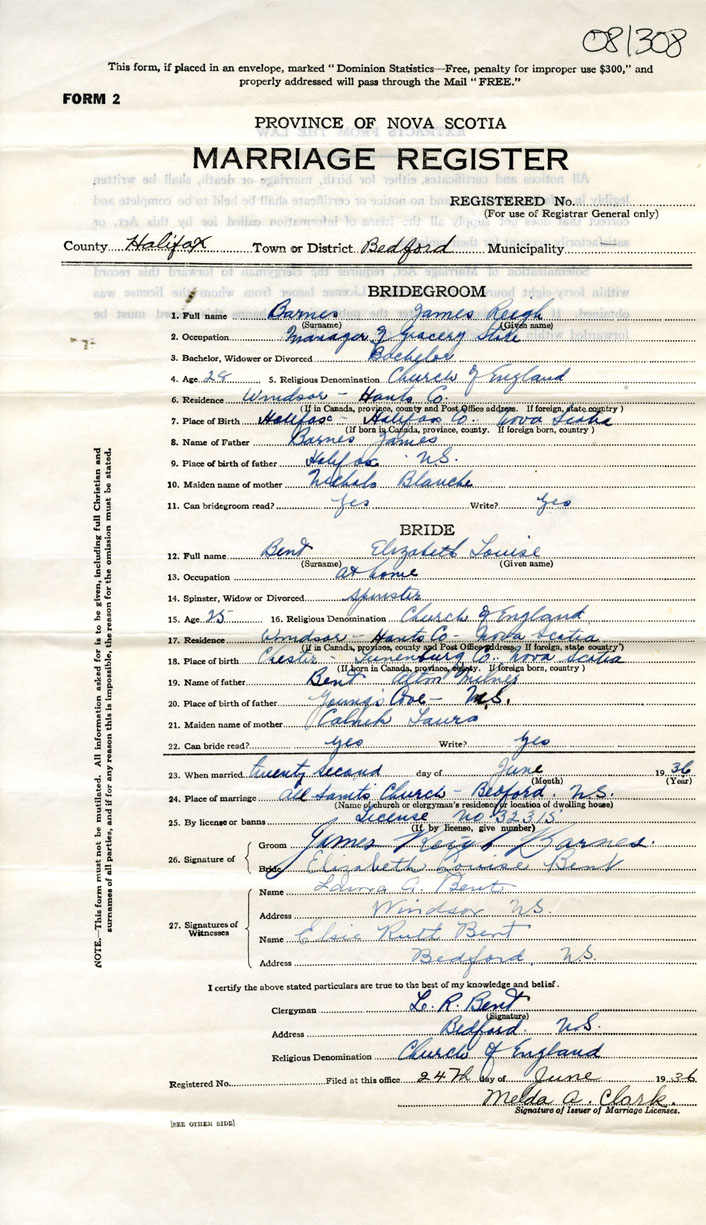 081308
This form, if placed in an envelope, marked "Dominion Statistics—Free, penalty for improper use $300," and
properly addressed will pass through the Mail "FREE."
FORM 2
PROVINCE OF NOVA SCOTIA
MARRIAGE REGISTER
REGISTERED No.
(For use of Registrar General only)
County Halifax Town or District Bedford Municipality
BRIDEGROOM
1. Full name Barnes James Reigh
(Surname) (Given name)
2. Occupation Manager of Grocery Store
3. Bachelor, Widower or Divorced Bachelor
4. Age 28 5. Religious Denomination Church of England
6. Residence Windsor - Hants Co.
(If in Canada, province, county and Post Office address. If foreign, state country)
7. Place of Birth Halifax - Halifax Co. Nova Scotia
(If born in Canada, province, county. If foreign born, country)
8. Name of Father Barnes James
9. Place of birth of father Halifax N.S.
10. Maiden name of mother Nichols Blanche
11. Can bridegroom read? Yes Write? Yes
BRIDE
12. Full name Bent Elizabeth Louise
(Surname) (Given name)
13. Occupation at home
14. Spinster, Widow or Divorced spinster
15. Age 25 16. Religious Denomination Church of England
17. Residence Windsor - Hants Co - Nova Scotia
(If in Canada, province, county and Post Office address. If foreign, state country)
18. Place of birth Chester - Lunenburg Co. Nova Scotia
(If born in Canada, province, county. If foreign born, country)
19. Name of father Bent Alton
20. Place of birth of father Young's Cove - N.S.
21. Maiden name of mother Laura
22. Can bride read? Yes Write? Yes
23. When married twenty second day of June 1936
(Month) (Year)
24. Place of marriage All Saints Church - Bedford. N.S.
(Name of church or clergyman's residence or location of dwelling house)
25. By license or banns License No. 32315
(If by license, give number)
26. Signature of
Groom James Barnes.
Bride Elizabeth Louise Bent
27. Signatures of Witnesses
Name Laura A. Bent
Address Windsor N.S.
Name Elsie Ruth Bent
Address Bedford, N.S.
I certify the above stated particulars are true to the best of my knowledge and belief.
Clergyman L. R. Bent
(Signature)
Address Bedford. N.S.
Religious Denomination Church of England
Registered No. Filed at this office 24th day of June 1936
Melda A. Clark.
Signature of Issuer of Marriage Licenses.
[SEE OTHER SIDE]
NOTE.—This form must not be mutilated. All information asked for is to be given, including full Christian and
surnames of all parties, and if for any reason this is impossible, the reason for the omission must be stated.